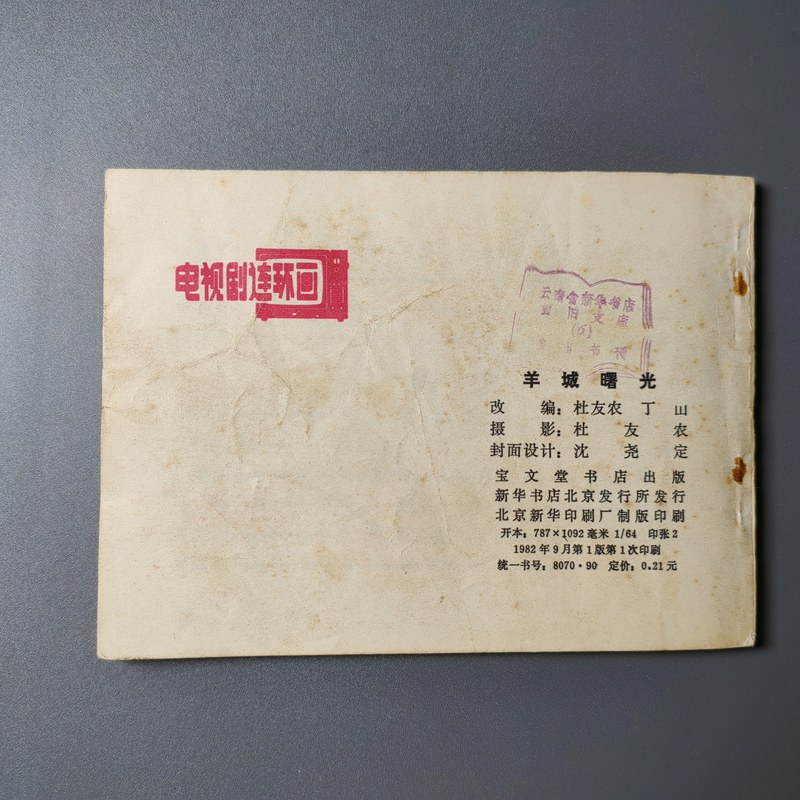 电视剧连环画
云南省新华书店
书刊
羊城曙光
改编：杜友农 丁山
摄影：杜友农
封面设计：沈尧定
宝文堂书店出版
新华书店北京发行所发行
北京新华印刷厂制版印刷
开本：787×1092毫米 1/64 印张2
1982年9月第1版第1次印刷
统一书号：8070·90 定价：0.21元